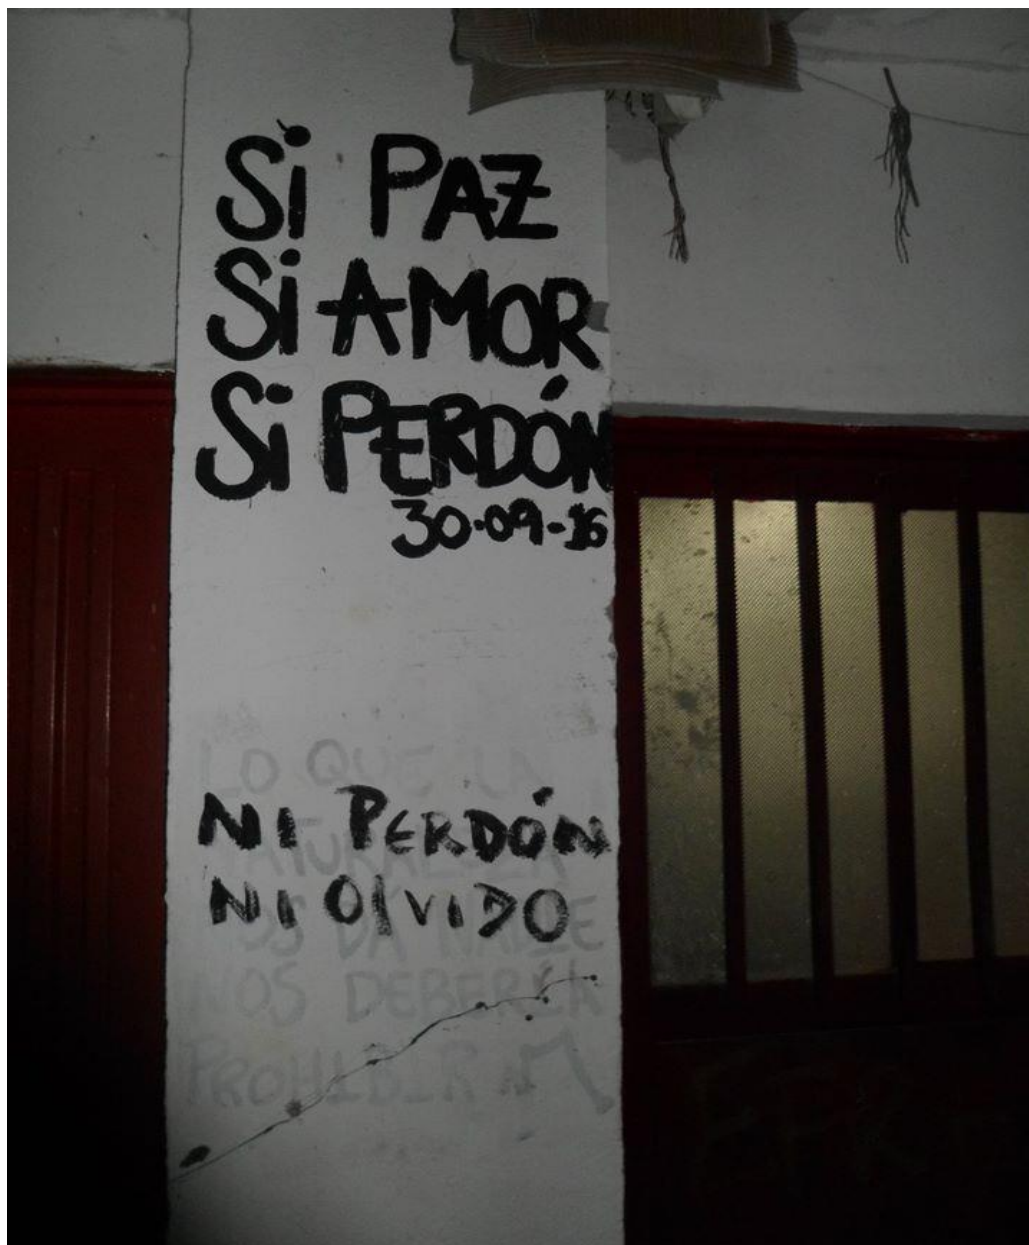 Si PAZ
Si AMOR
Si PERDÓN
30-09-16
LO QUE LA
NI PERDÓN
NATURALEZA
NI OlVIDO
NOS DA NADIE
NOS DEBERÍA
PROHIBIR